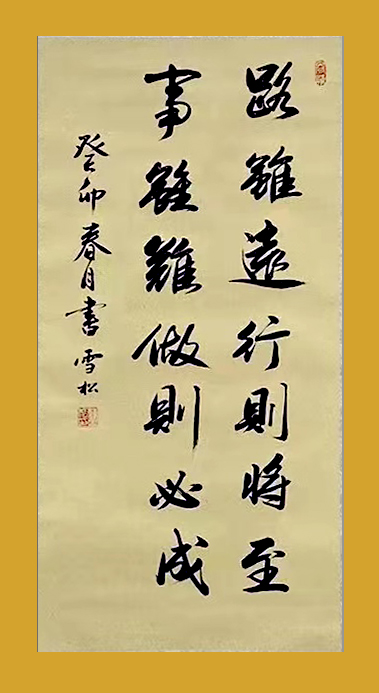 路雖遠行則將至
事雖難做則必成
癸卯春月書雪松